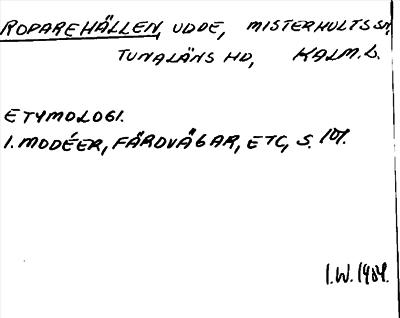 ROPAREHÄLLEN, UDDE, MISTERHULTS SN,
TUNALÄNS HD, KALM.L.
ETYMOLOGI.
I. MODÉER, FÄRDVÄGAR, ETC, S. 101.
I.W. 1984.